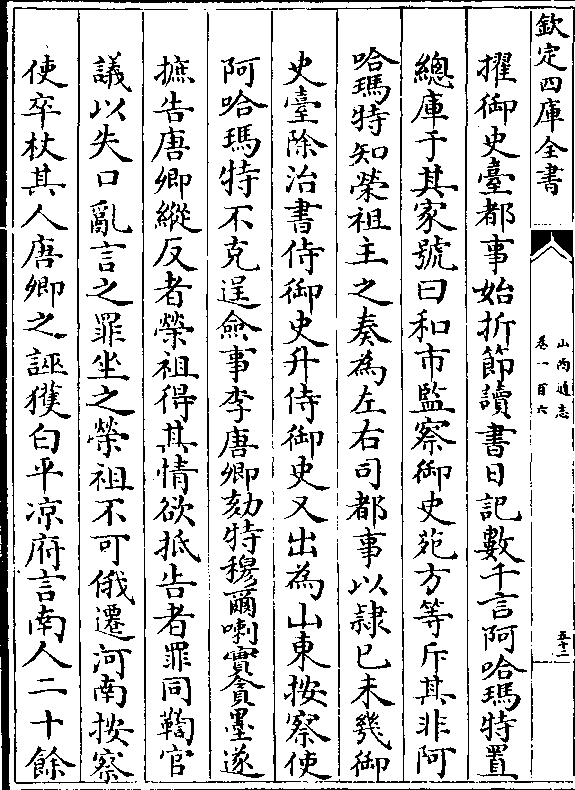 欽定四庫全書
山西通志
卷一百六
五十二
擢御史臺都事始折節讀書日記數千言阿哈瑪特置
總庫于其家號曰和市監察御史范方等斥其非阿
哈瑪特知榮祖主之奏為左右司都事以隸已未幾御
史臺除治書侍御史升侍御史又出為山東按察使
阿哈瑪特不克逞僉事李唐卿劾特穆爾喇實貪墨遂
摭告唐卿縱反者榮祖得其情欲抵告者罪同鞫官
議以失口亂言之罪坐之榮祖不可俄遷河南按察
使卒杖其人唐卿之誣獲白平凉府言南人二十餘